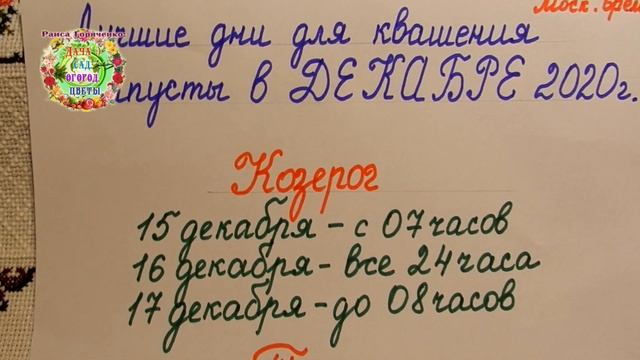 Моск. врем
Раиса Горяченко
ДАЧА
САД
ОГОРОД
ЦВЕТЫ
Лучшие дни для квашения
пусты в ДЕКАБРЕ 2020г.
Козерог
15 декабря - с 07 часов
16 декабря - все 24 часа
17 декабря - до 08 часов